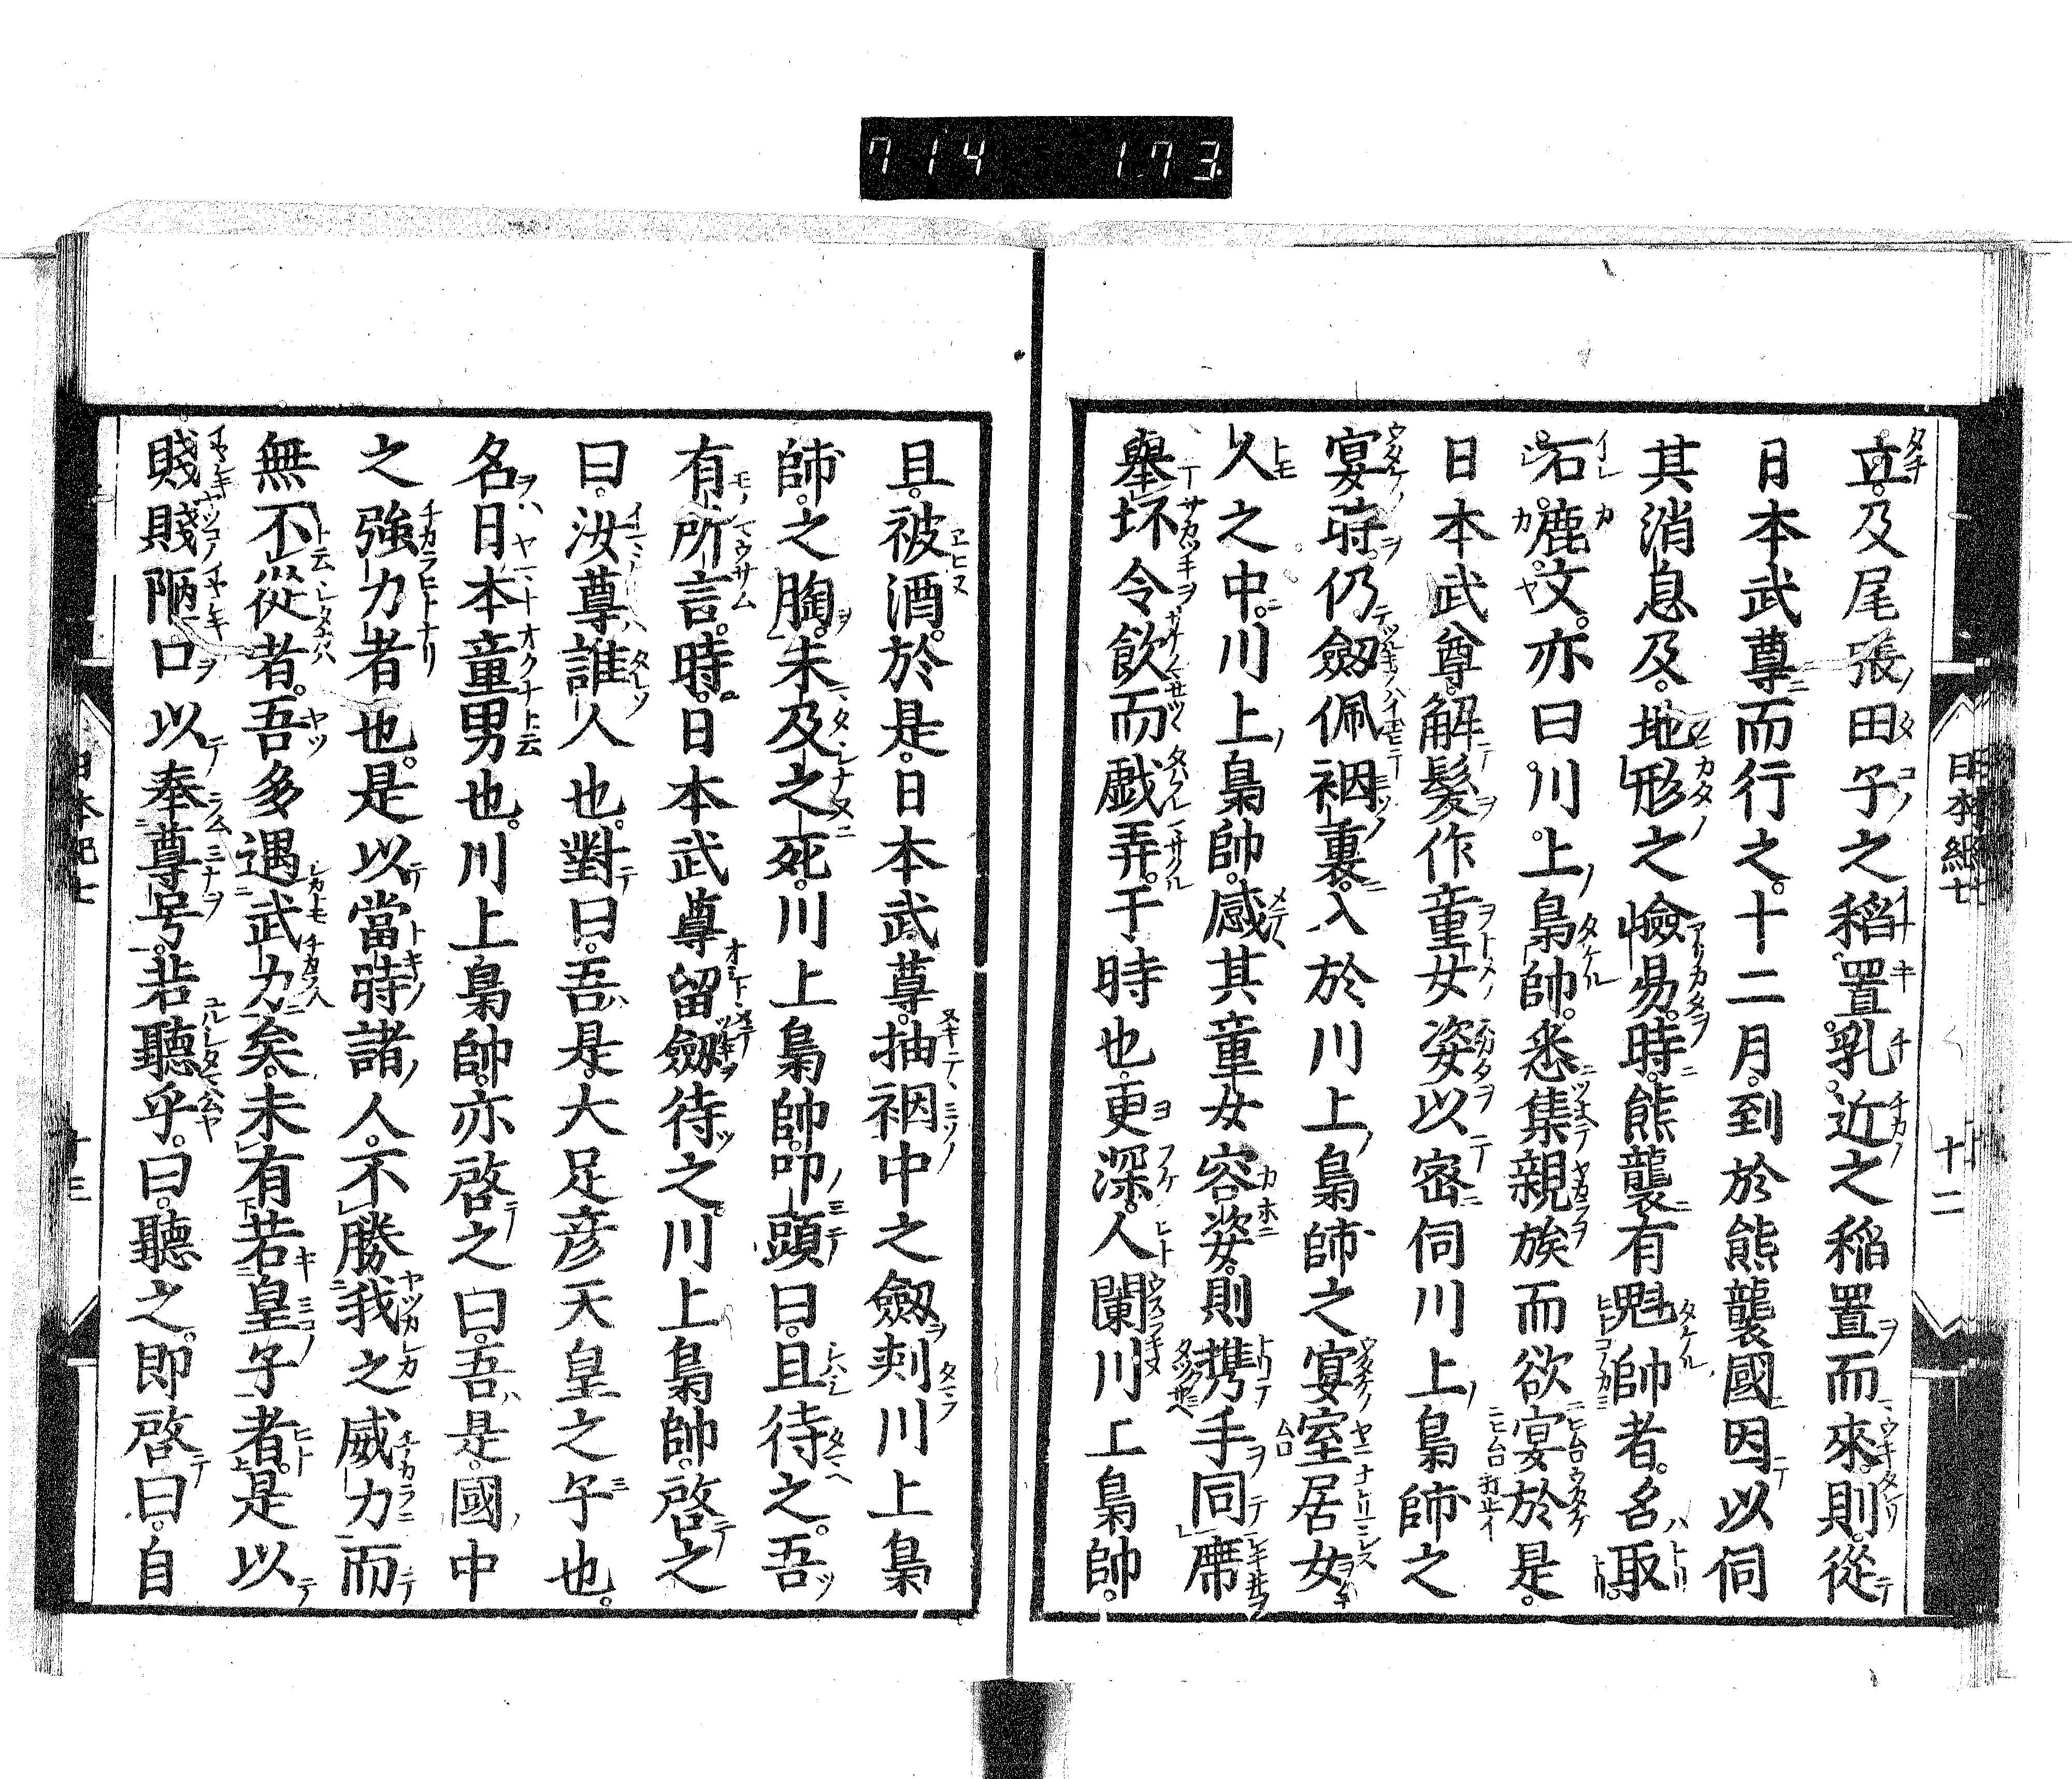 714 173
日本紀七
十二
立及尾張田子之稻置乳近之稲置而來則從
日本武尊而行之十二月到於熊襲國因以伺
其消息及地形之嶮易時熊襲有魁帥者名取
石鹿文亦曰川上梟帥悉集親族而欲宴於是
日本武尊解髮作童女姿以密伺川上梟師之
宴時仍劔佩裀裏入於川上梟師之宴室居女
人之中川上梟帥感其童女容姿則携手同席
擧坏令飲而戯弄于時也更深人闌川上梟帥
且被酒於是日本武尊抽裀中之劔刺川上梟
師之胸未及之死川上梟帥叩頭曰且待之吾
有所言時日本武尊留劔待之川上梟帥啓之
曰汝尊誰人也對曰吾是大足彦天皇之子也
名日本童男也川上梟帥亦啓之曰吾是國中
之強力者也是以當時諸人不勝我之威力而
無不從者吾多遇武力矣未有若皇子者是以
賎賤陋口以奉尊号若聽乎曰聽之即啓曰自
日本紀七
十三